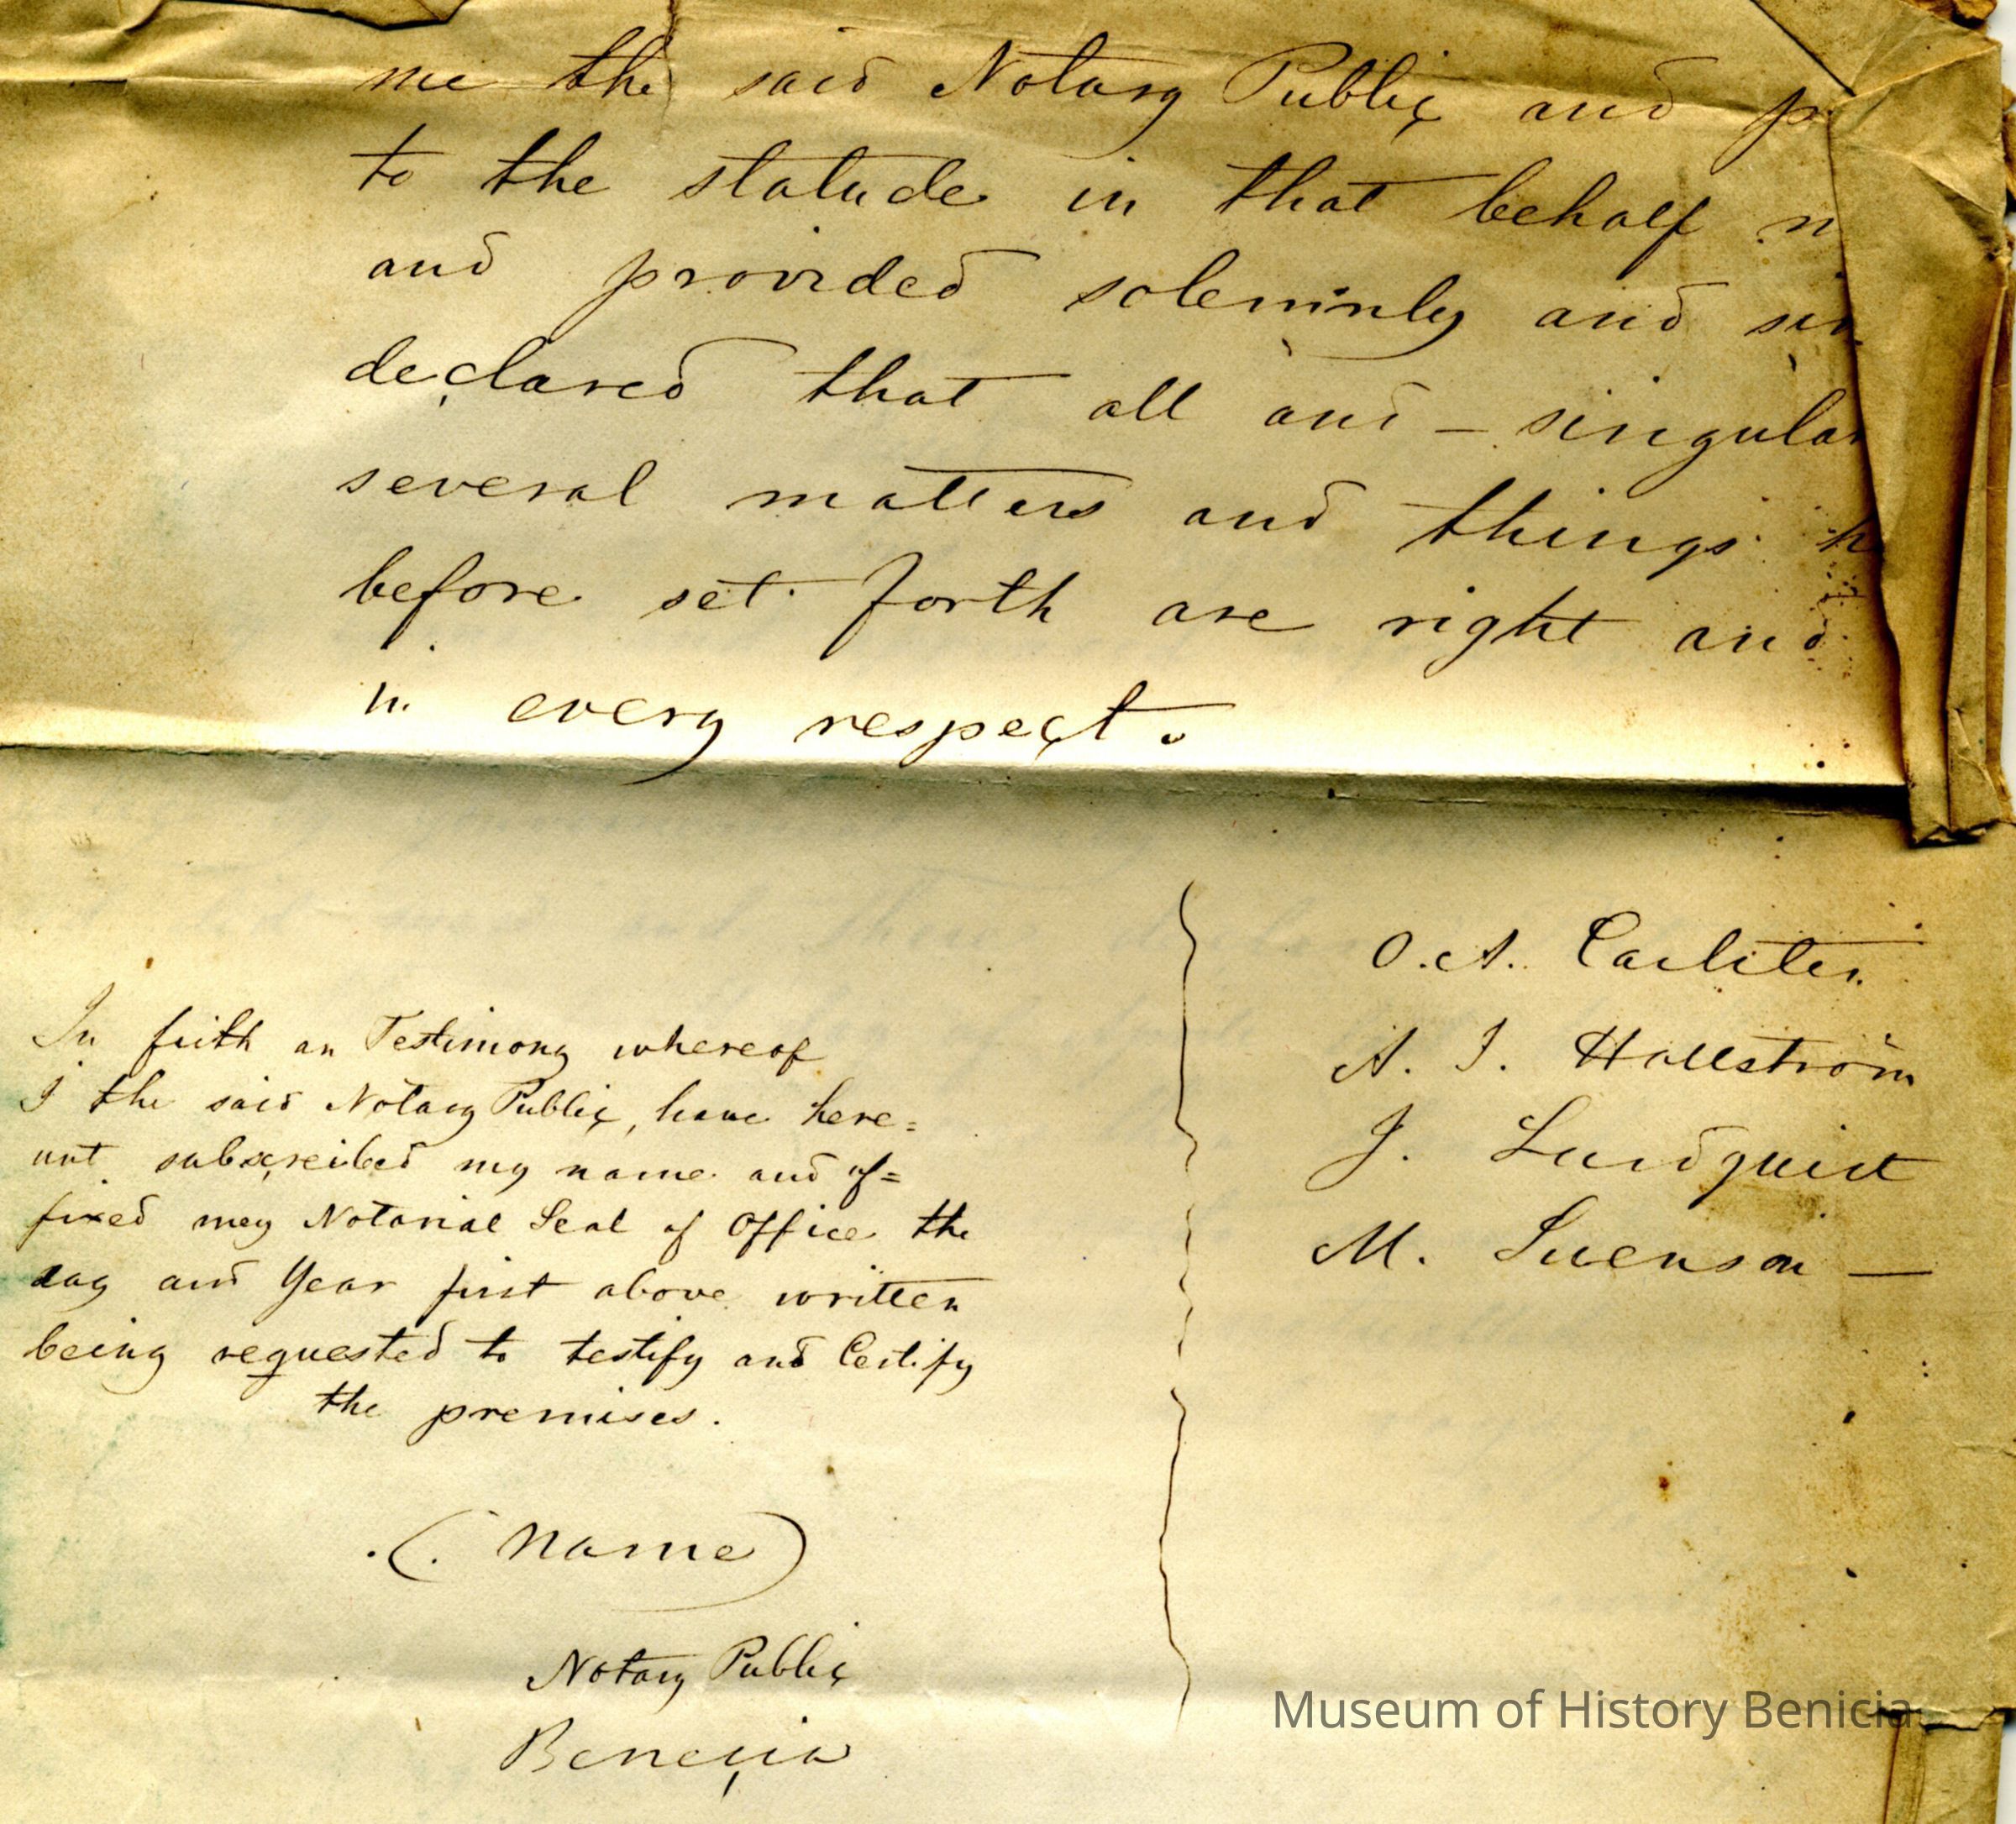 me the said Notary Public and p
to the statude in that behalf m
and provided solemnly and sin
declared that all and – singular
several matters and things h
before set forth are right and
in every respect.
O. A. Carlsten
A. I. Hallström
J. Lundquist
M. Svenson —
In faith an Testimony whereof
I the said Notary Public, have here=
unt subscreibed my name and af=
fixed mey Notarial Seal of Office the
day and Year first above written
being requested to testify and Certify
the premises.
(Name)
Notary Public
Benecia
Museum of History Benicia